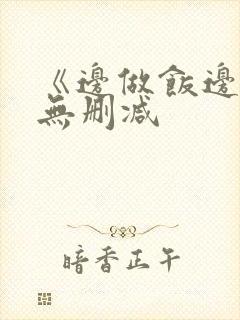 《邊做飯邊
無刪减
暗香正午